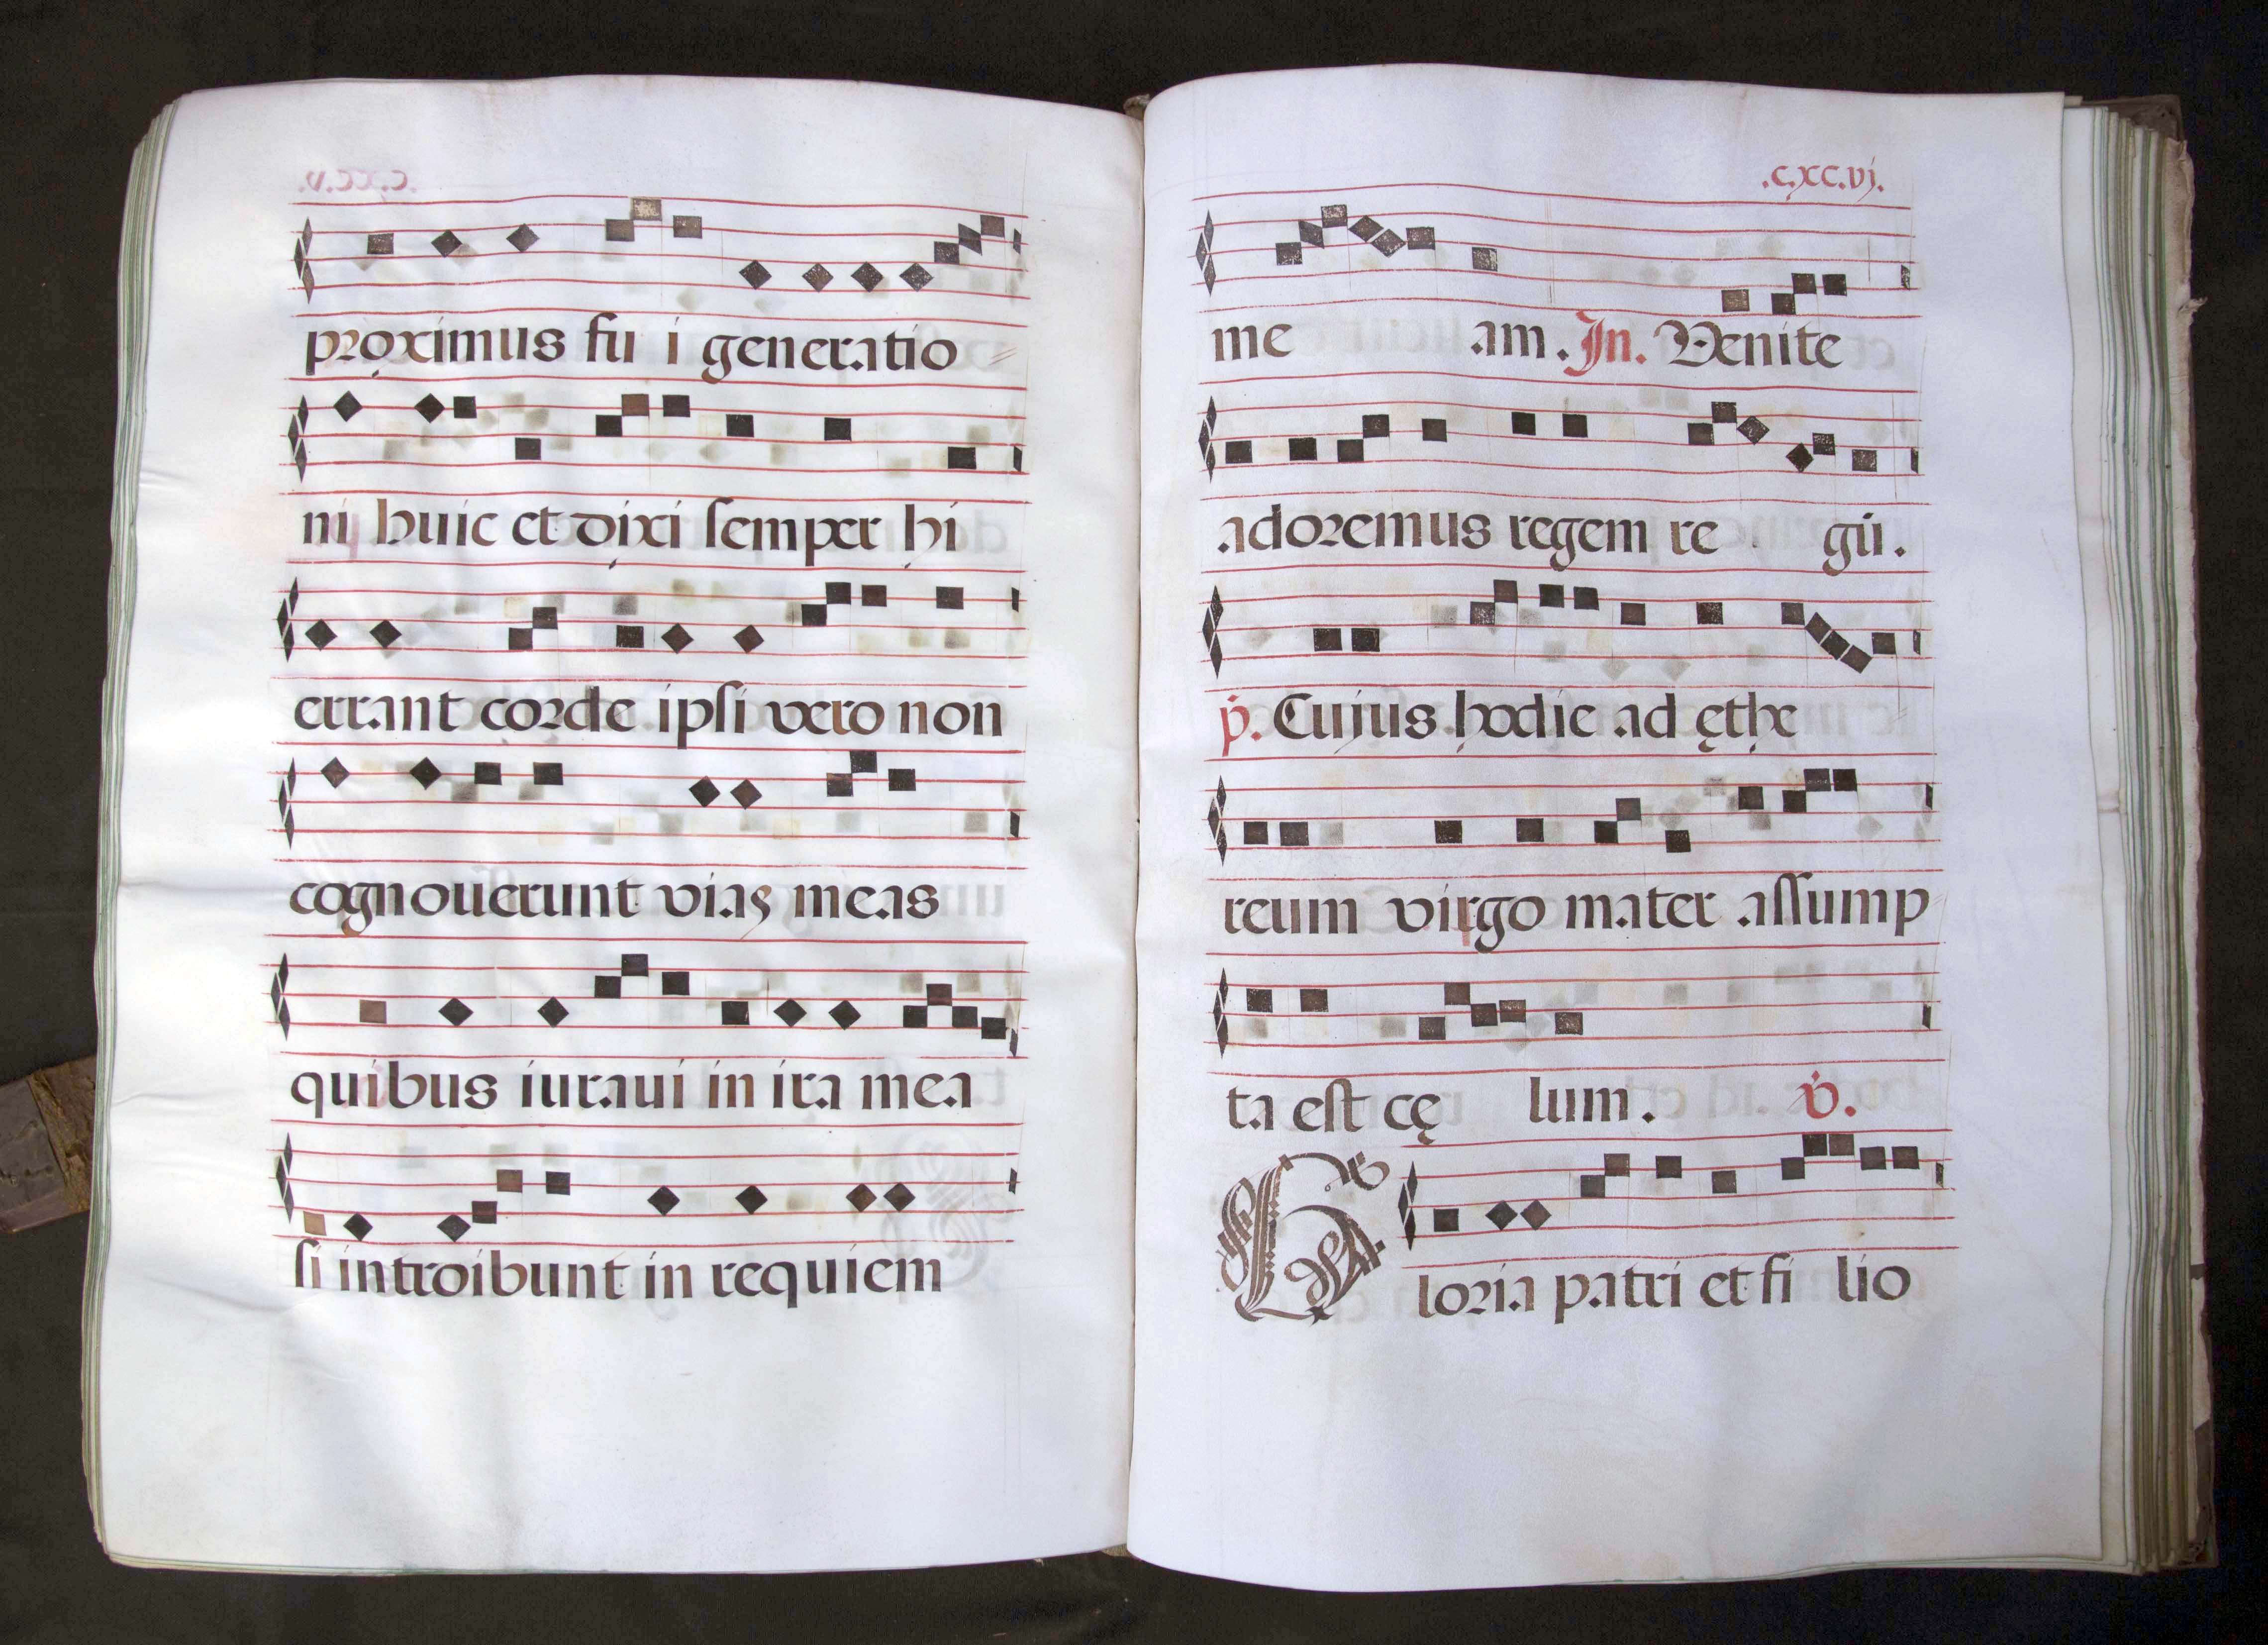 proximus fu i generatio
ni huic et dixi semper hi
errant corde ipsi vero non
cognouerunt vias meas
quibus iuraui in ira mea
si introibunt in requiem
.c.xc.vj.
me am. In. Venite
adoremus regem re gū.
p̄. Cujus hodie ad ęthe
reum virgo mater assump
ta est cę lum. v̄.
Gloria patri et fi lio